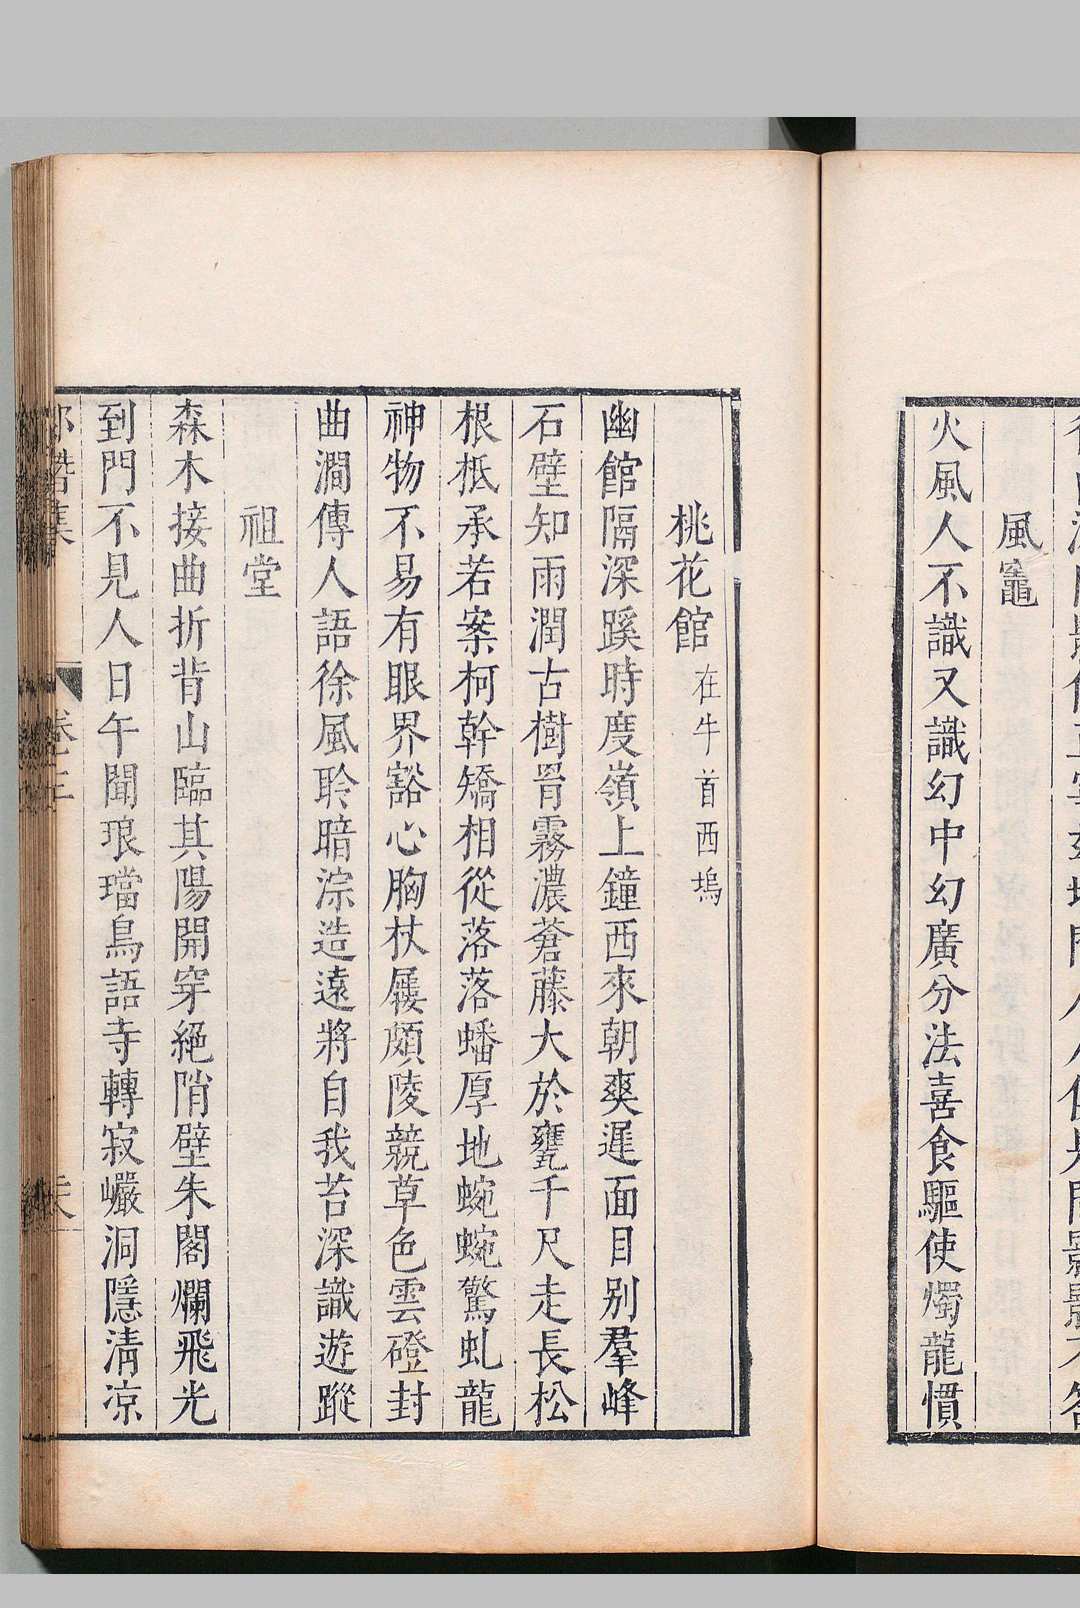 風竈
火風人不識又識幻中幻廣分法喜食驅使燭龍慣
桃花館 在牛首西塢
幽館隔深蹊時度嶺上鐘西來朝爽遲面目别羣峰
石壁知雨潤古樹罥霧濃蒼藤大於甕千尺走長松
根柢承若案柯幹矯相從落落蟠厚地蜿蜿驚虬龍
神物不易有眼界豁心胸杖屨頗陵競草色雲磴封
曲澗傳人語徐風聆暗淙造遠將自我苔深識遊蹤
祖堂
森木接曲折背山臨其陽開穿絕陗壁朱閣爛飛光
到門不見人日午聞琅璫鳥語寺轉寂巗洞隱清凉
卷三